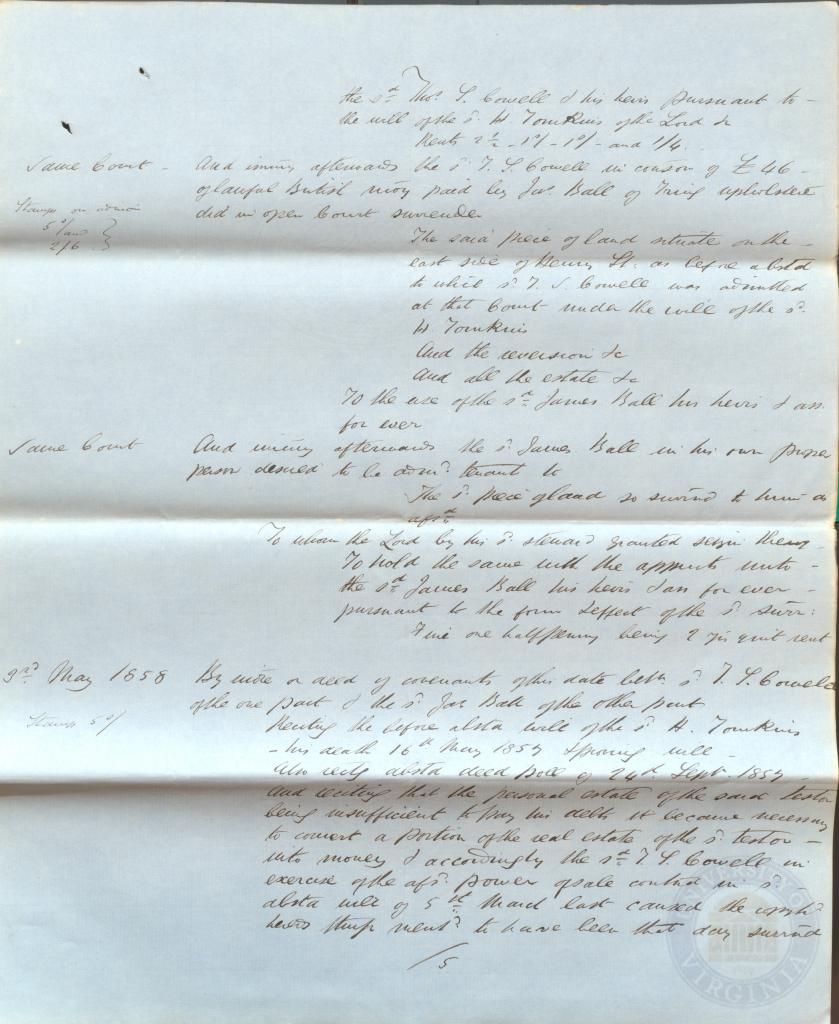 the sd. Thos. S. Cowell & his heirs pursuant to -
the will of the sd. H Tomkins of the Lord &c
Rents 2½ - 1d/- 1d/- and 1/4.
Same Court - And immy afterwards the sd. T. S. Cowell in conson of £46 -
of lawful British mony paid by Jas. Ball of Tring upholsterer
Stamps on admon
5s/ and
2/6
did in open Court surrender
The said piece of land situate on the -
east side of Henry St. as before abstd
to which sd. T. S. Cowell was admitted
at that Court under the will of the sd.
H Tomkins
And the reversion &c
And all the estate &c
To the use of the sd. James Ball his heirs & ass
for ever
Same Court And immy afterwards the sd. James Ball in his own proper
person desired to be admd. tenant to
The sd. piece of land so surrd to him as
afsd.
To whom the Lord by his sd. steward granted seizin thereof
To hold the same with the appurts unto -
the sd. James Ball his heirs & ass for ever -
pursuant to the form & effect of the sd. surr:
Fine one halfpenny being 2 yrs quit rent
3rd. May 1858 By indre or deed of covenants of this date betn. sd. T. S. Cowell
of the one part & the sd. Jas Ball of the other part
Stamp 5s/
Reciting the before abstd will of the sd. H. Tomkins
- his death 16th May 1857 & proving will -
Also recitg abstd deed Poll of 24th. Sept. 1857 -
And reciting that the personal estate of the said testor
being insufficient to pay his debts it became necessary
to convert a portion of the real estate of the sd. testor -
into money & accordingly the sd. T. S. Cowell in
exercise of the afsd. power of sale contd in sd.
abstd will of 5th March last caused the copyhd.
heredts thrin mentd. to have been that day surrd
/5
UNIVERSITY OF VIRGINIA